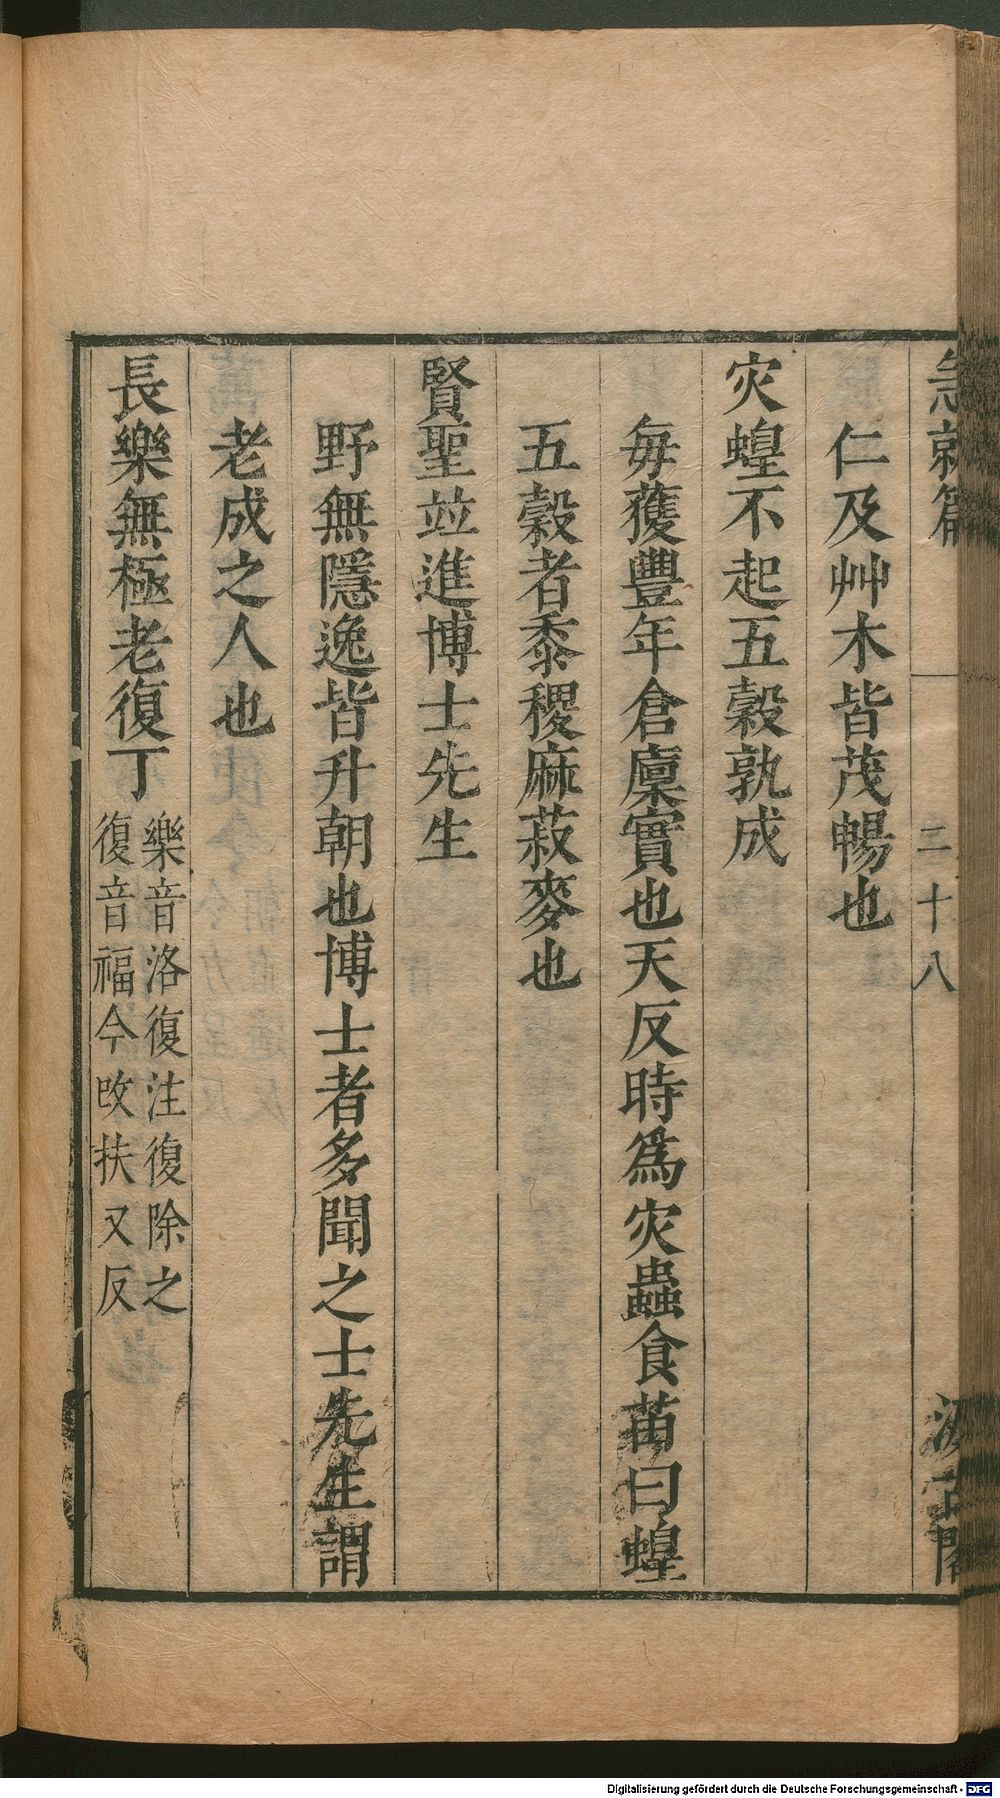 急就篇 二十八 汲古閣
仁及艸木皆茂暢也
灾蝗不起五穀孰成
每獲豐年倉廩實也天反時爲灾蟲食苗曰蝗
五穀者黍稷麻菽麥也
賢聖竝進博士先生
野無隱逸皆升朝也博士者多聞之士先生謂
老成之人也
長樂無極老復丁
樂音洛復注復除之
復音福今攺扶又反
Digitalisierung gefördert durch die Deutsche Forschungsgemeinschaft - DFG